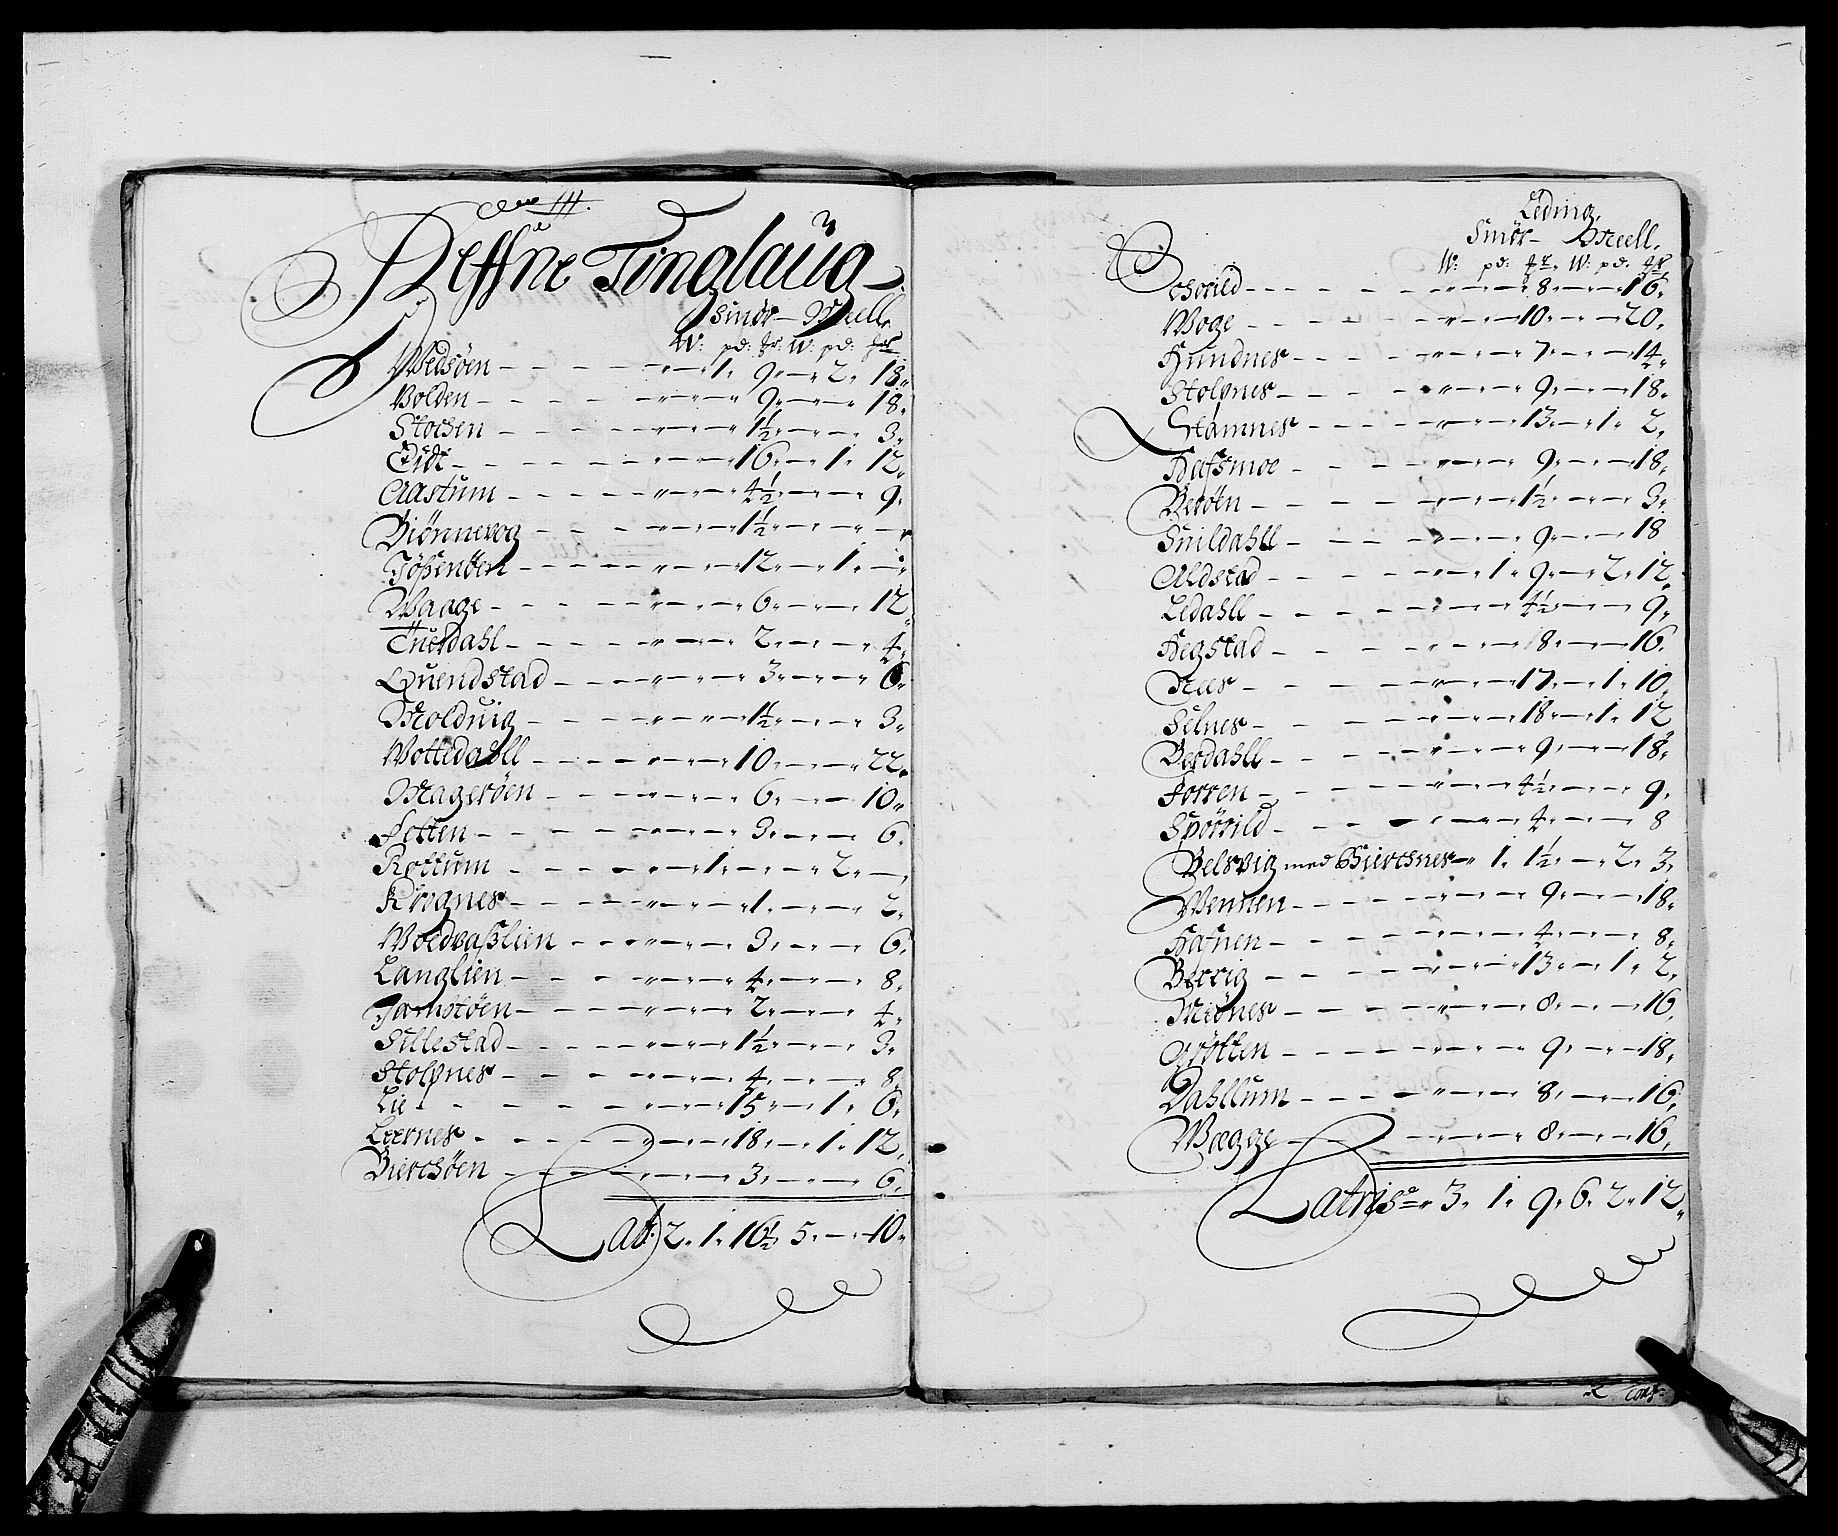 Heffne Tinglaug
Smör — Meell
W: pd: W: pd:
Wedsöen — 1. 9. — 2. 18.
Volden — 9. — 18.
Stochen — 1½. — 3.
Eidt — 16. — 1. 12.
Aastum — 4½. — 9.
Biönnevog — 1½. —
Jössenöen — 12. — 1. —
Waage — 6. — 12
Tuerdahl — 2. — 4.
Quendstad — 3. — 6.
Moldvig — 1½. — 3.
Wottedahll — 10. — 22.
Mageröen — 6. — 10.
Fetten — 3. — 6.
Rottum — 1. — 2. —
Krognes — 1. — 2.
Woedvasslien — 3. — 6.
Langlien — 4. — 8.
Jamstöen — 2. — 4.
Sillestad — 1½. — 3.
Stolpnes — 4. — 8.
Lie — 15. — 1. 6.
Leernes — 18. — 1. 12.
Bierchöen — 3. — 6.
Lat: 2. 1. 16½ 5. — 10.
Leding.
Smör — Meell.
W: pd: W: pd:
— 8. — 16.
Woge — 10. — 20.
Hundnes — 7. — 14.
Stolpnes — 9. — 18.
Stamnes — 13. — 1. 2.
Hafsmoe — 9. — 18.
Beröen — 1½. — 3.
Snildahll — 9. — 18
Aldstad — 1. 9. — 2. 12.
Ledahll — 4½. — 9.
Hegstad — 8. — 16.
Nees — 17. — 1. 10.
Selnes — 18. — 1. 12
Berdahll — 9. — 18.
Forren — 4½. — 9.
Spörrild — 4. — 8
Belsvig med Bierchnes — 1. 1½. — 2. 3.
Wennen — 9. — 18.
Hafnen — 4. — 8.
Bervig — 13. — 1. 2.
Miönes — 8. — 16.
Grötten — 9. — 18.
Dahllum — 8. — 16.
Wægge — 8. — 16.
Latris 3. 1. 9. 6. 2. 12.